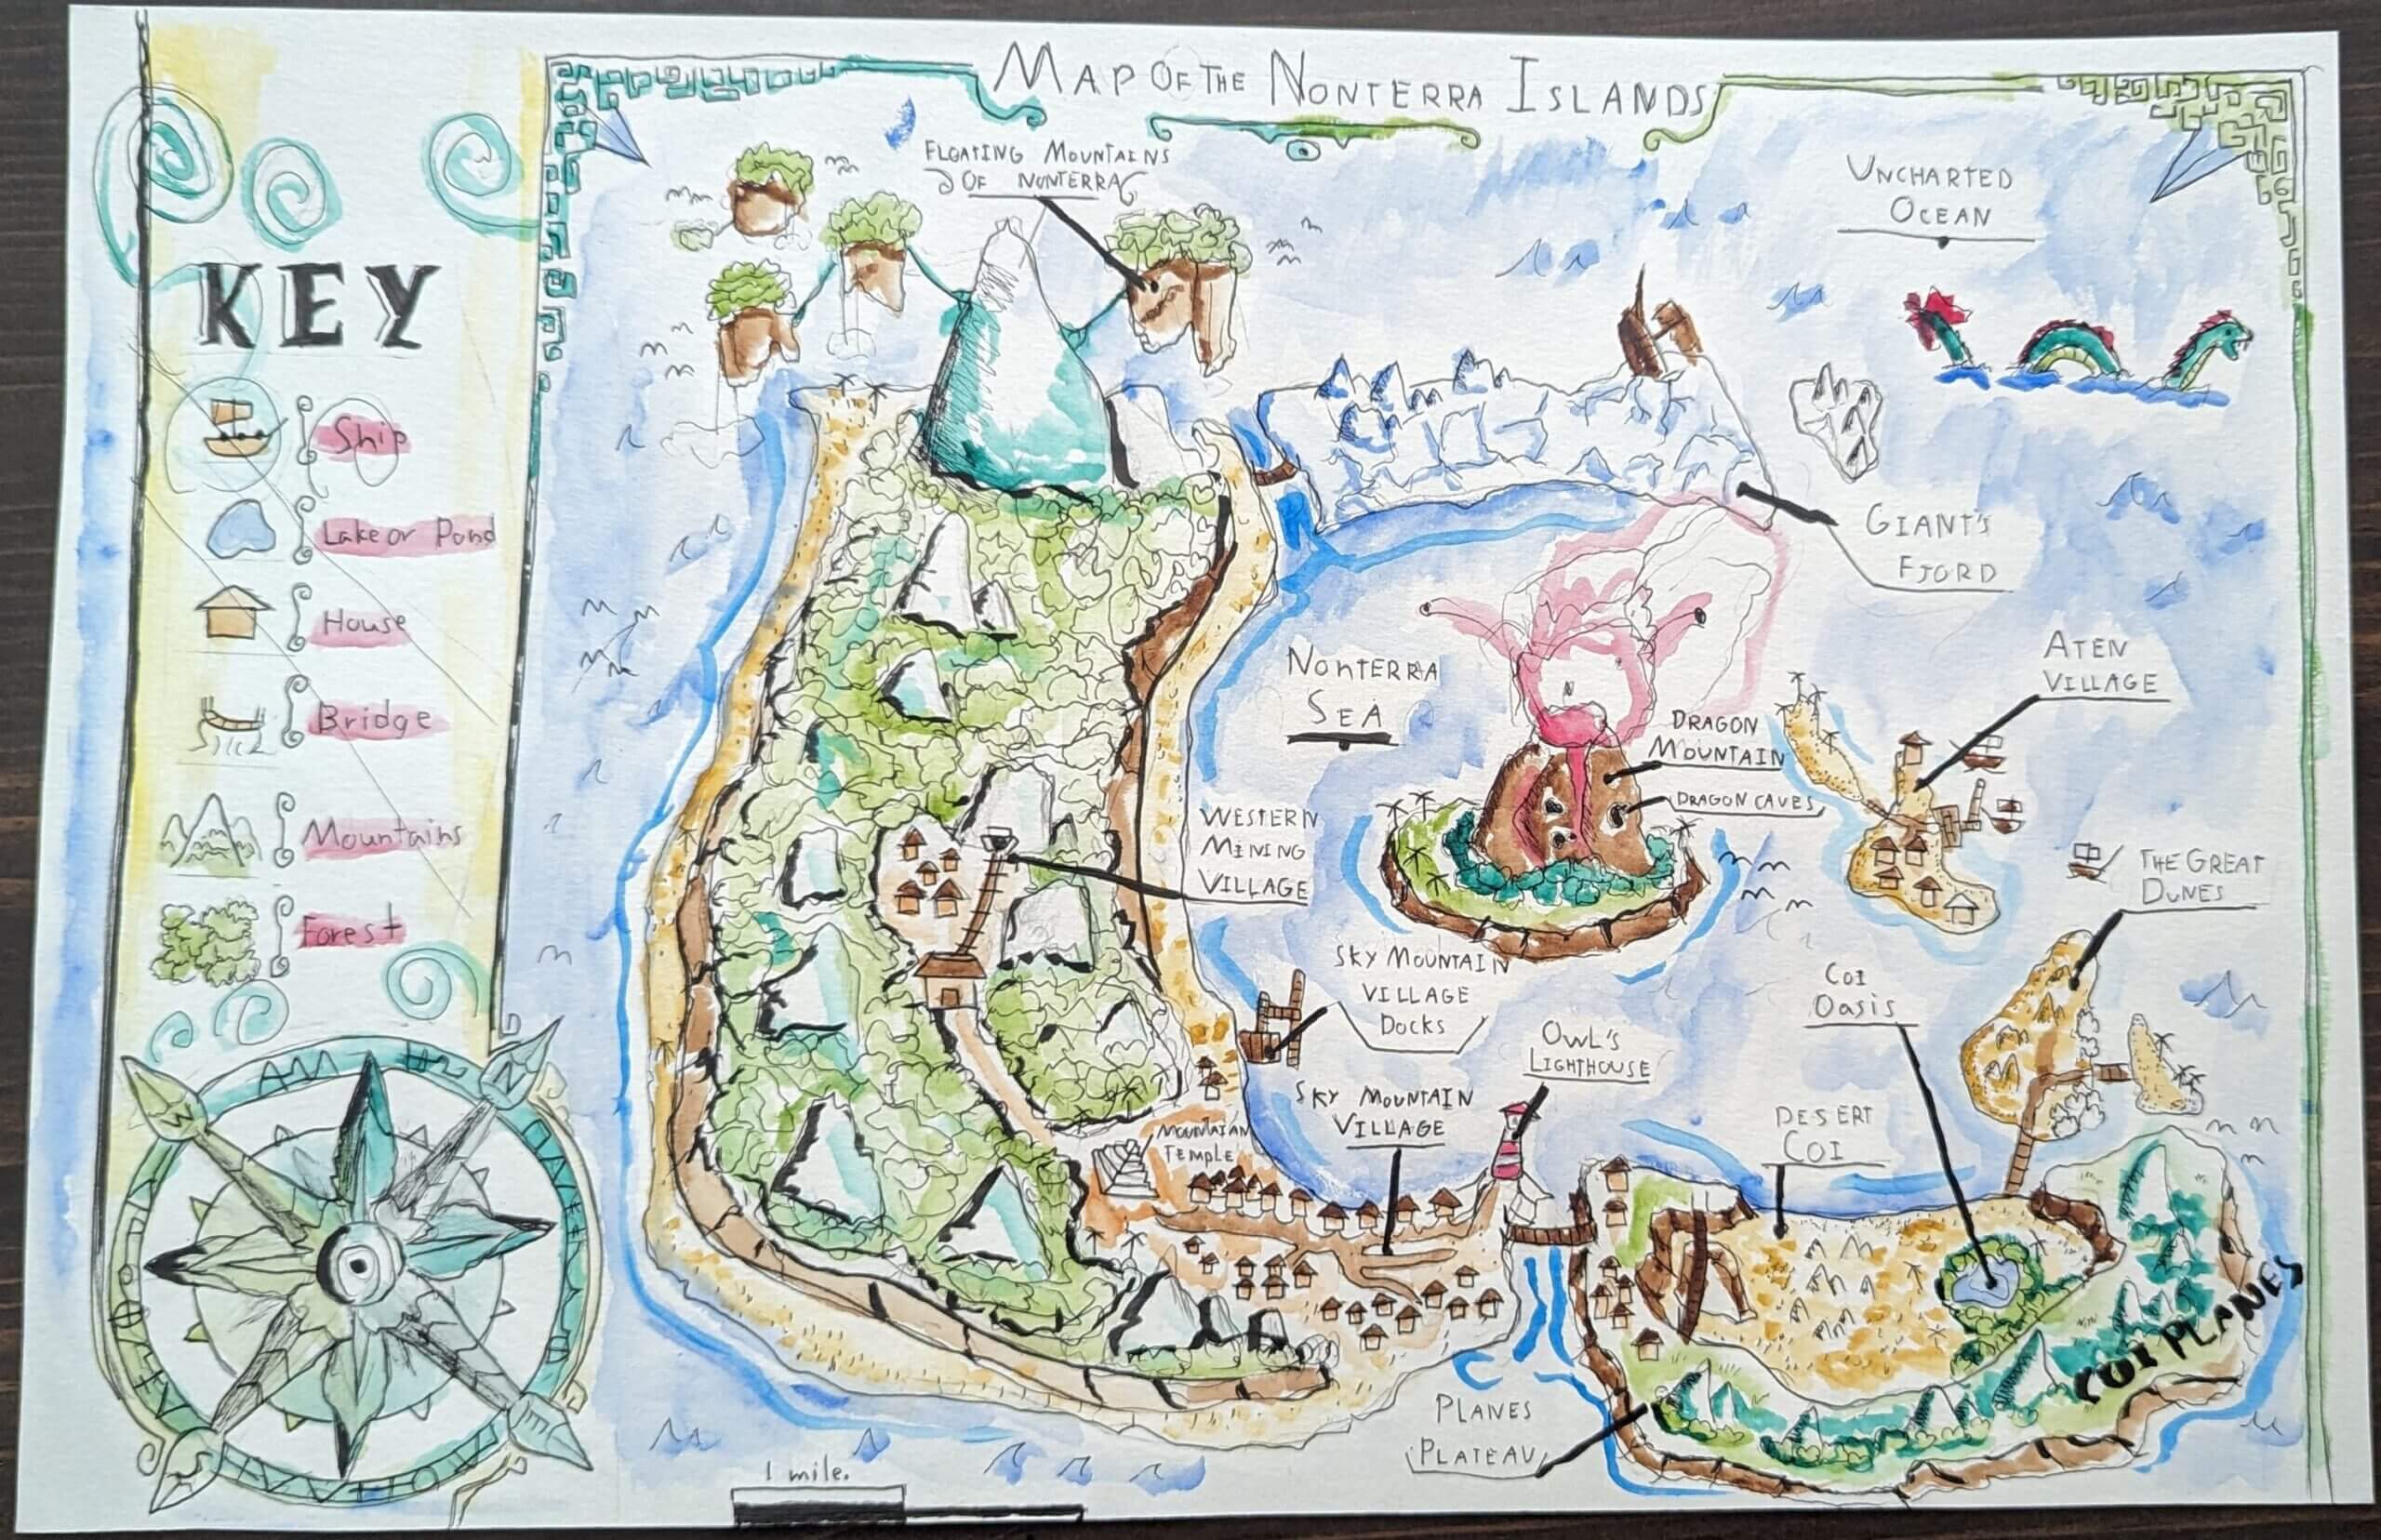 MAP OF THE NONTERRA ISLANDS
KEY
Ship
Lake or Pond
House
Bridge
Mountains
Forest
N
W
E
S
FLOATING MOUNTAINS
OF NONTERRA
UNCHARTED
OCEAN
GIANT'S
FJORD
NONTERRA
SEA
ATEN
VILLAGE
DRAGON
MOUNTAIN
DRAGON CAVES
WESTERN
MINING
VILLAGE
THE GREAT
DUNES
SKY MOUNTAIN
VILLAGE
DOCKS
COI
OASIS
OWL'S
LIGHTHOUSE
SKY MOUNTAIN
VILLAGE
DESERT
COI
MOUNTAIAN
TEMPLE
COI PLANES
PLANES
PLATEAU
1 mile.